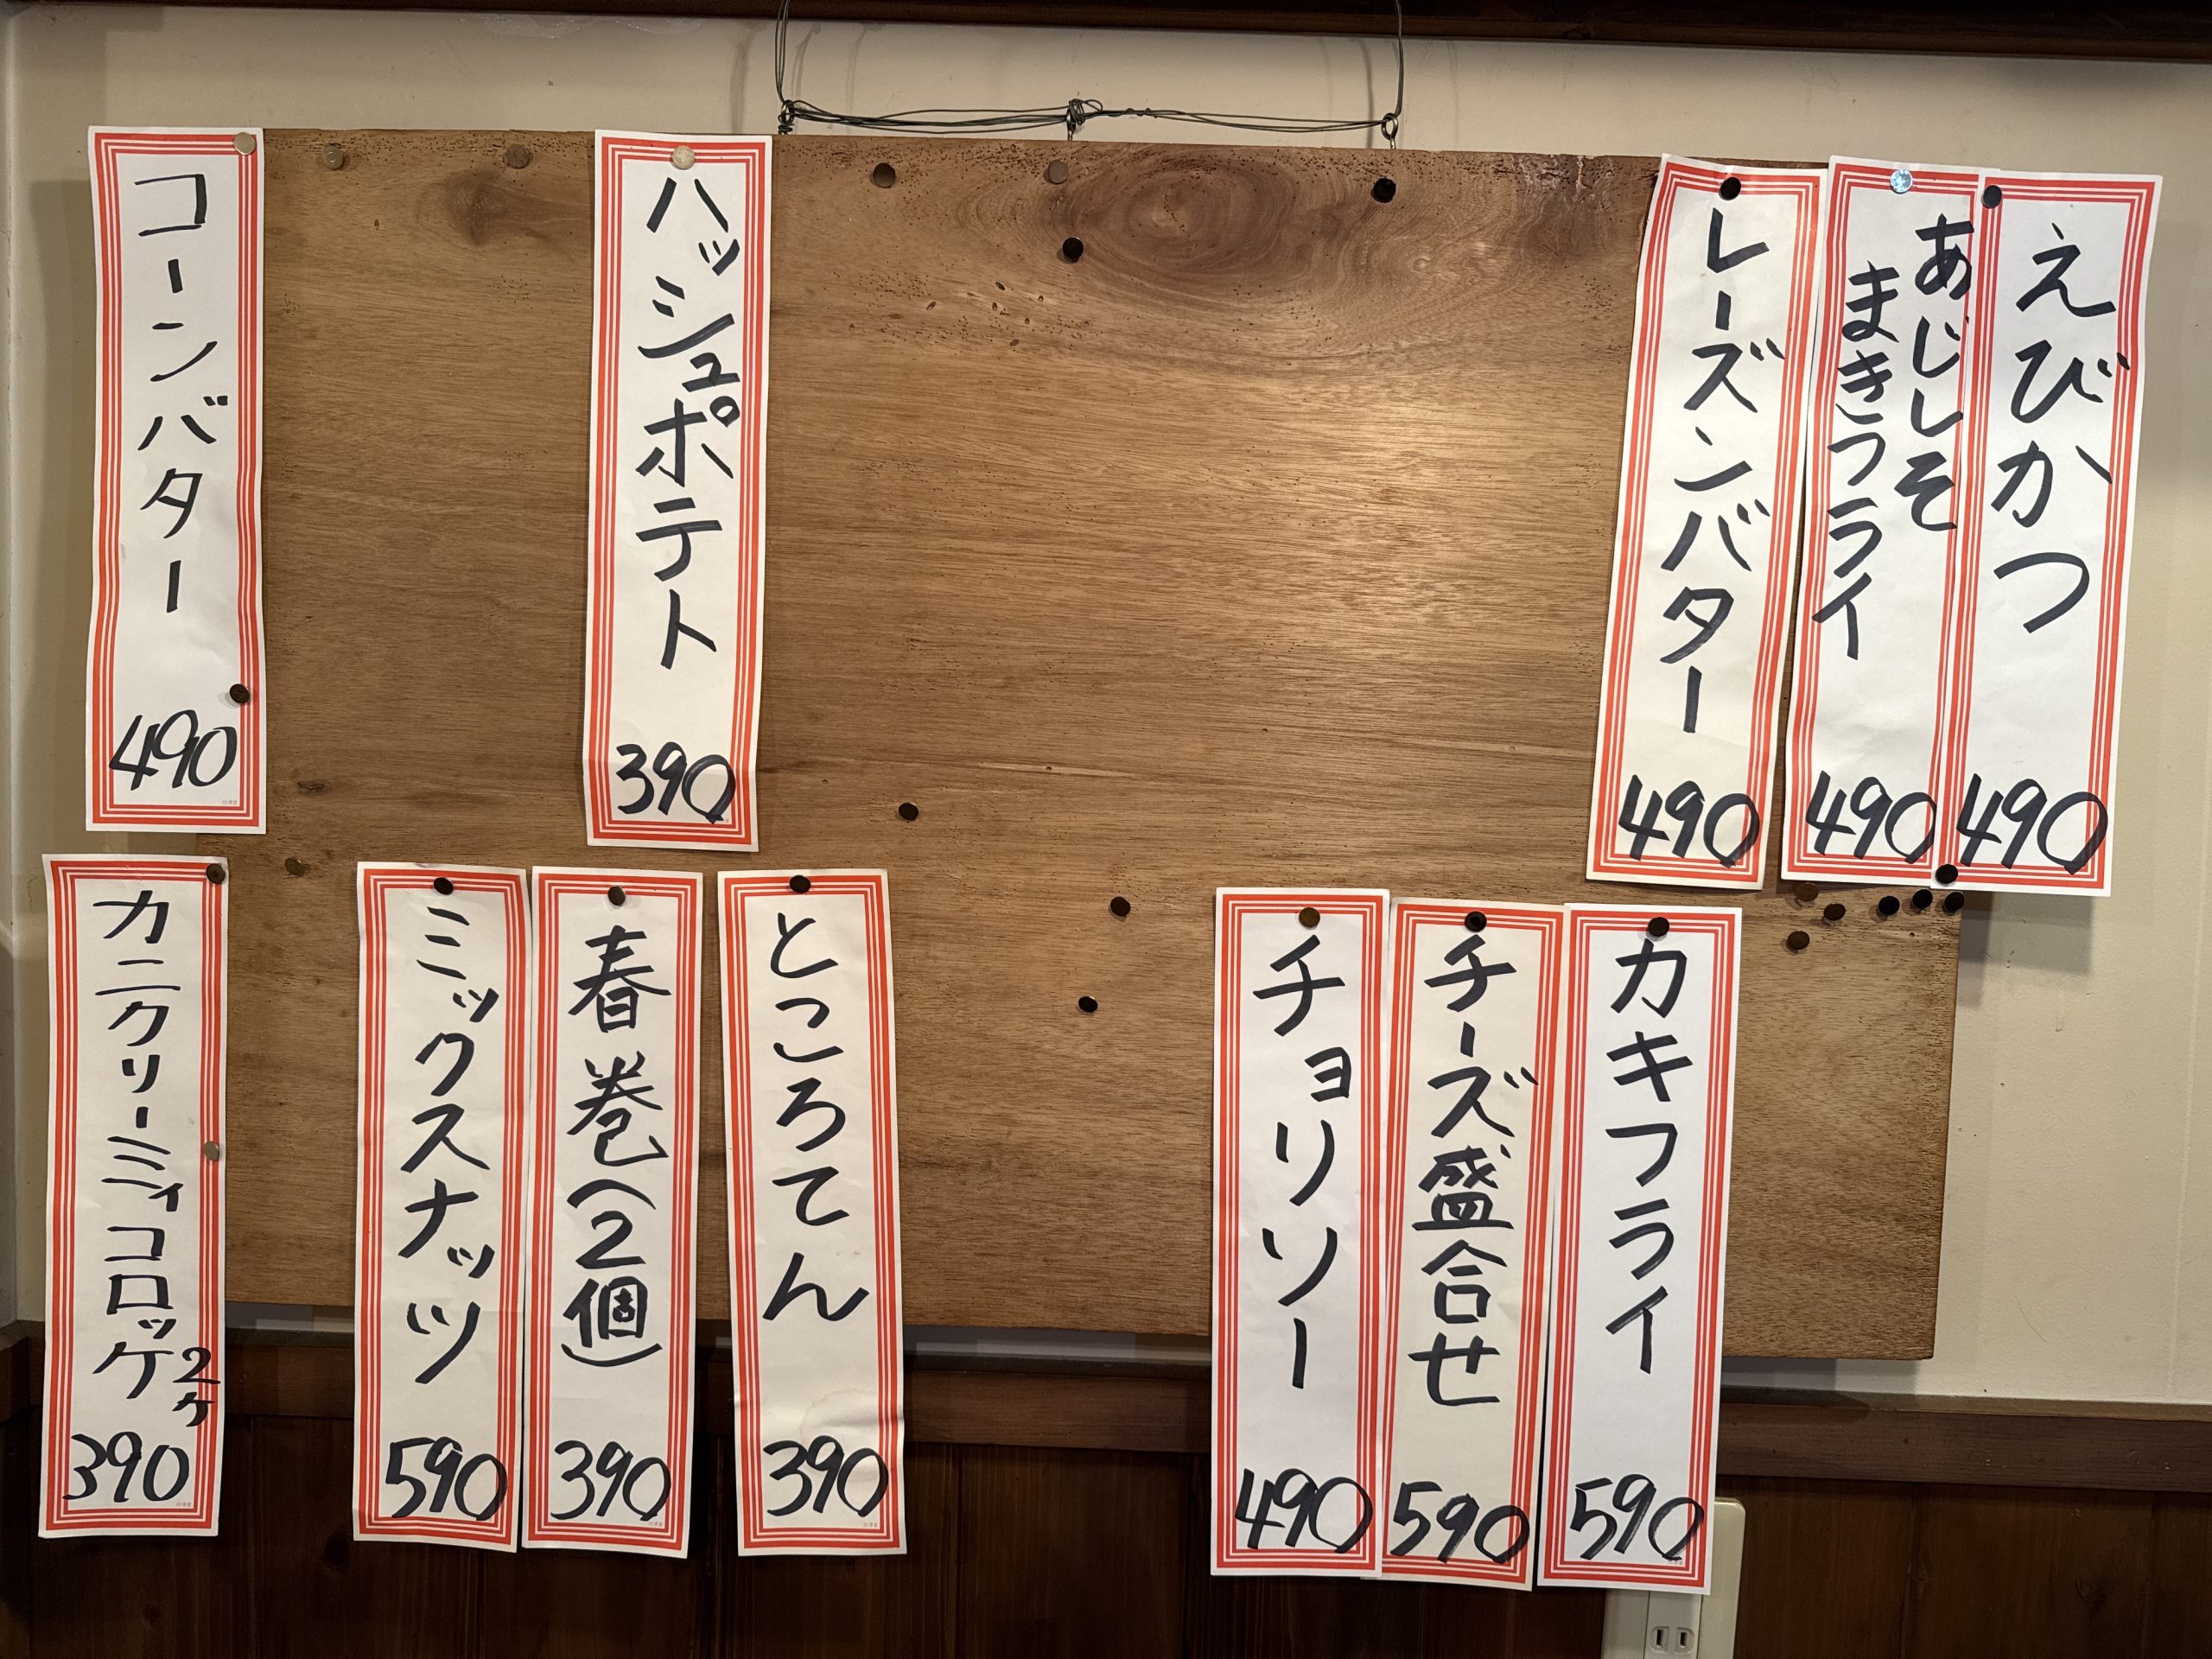 えびかつ
490
あじしそ
まきフライ
490
レーズンバター
490
ハッシュポテト
390
コーンバター
490
カキフライ
590
チーズ盛合せ
590
チョリソー
490
ところてん
390
春巻(2個)
390
ミックスナッツ
590
カニクリーミィコロッケ
2ケ
390